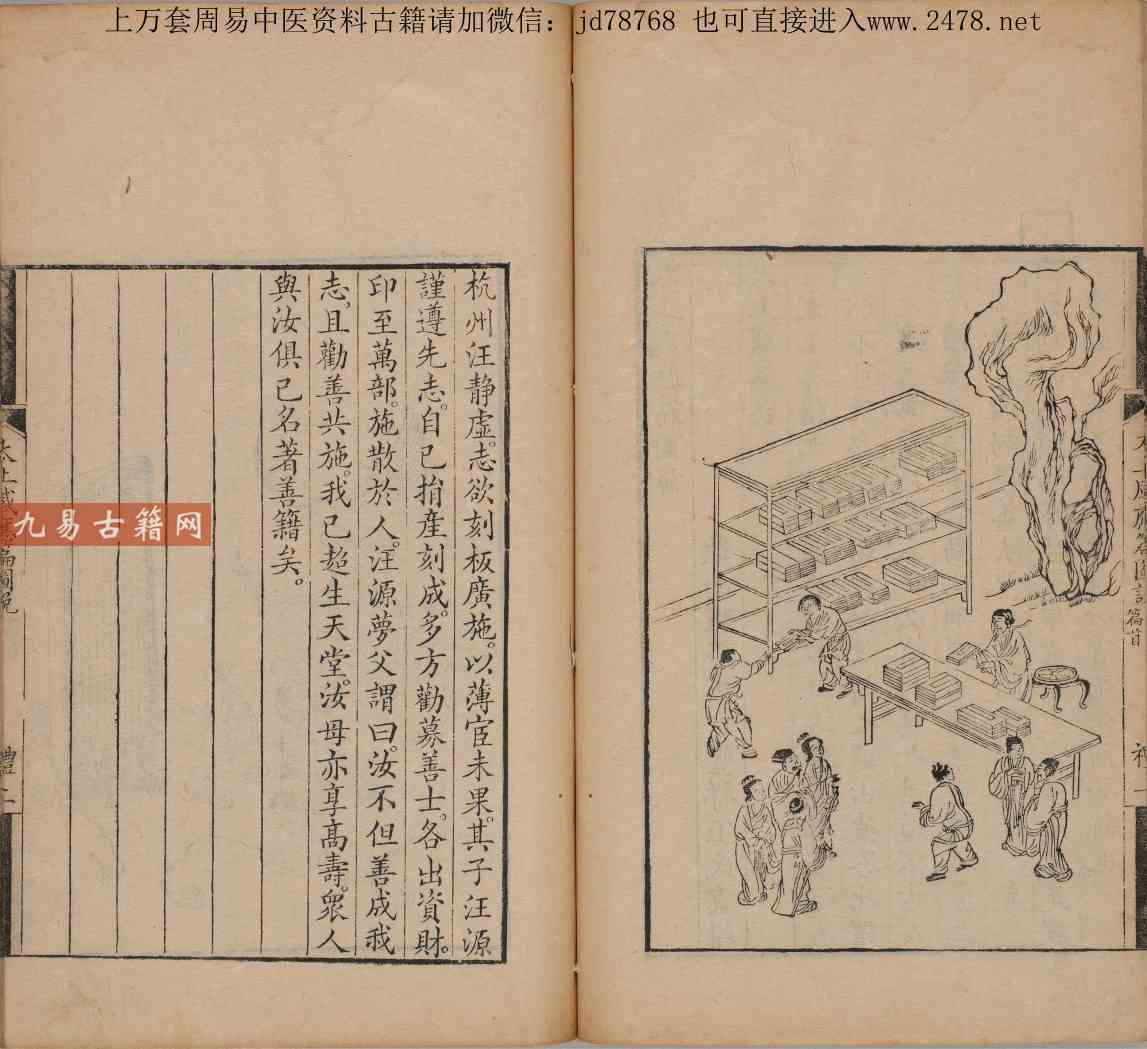 上万套周易中医资料古籍请加微信：jd78768 也可直接进入www.2478.net
杭州汪静虛。志欲刻板廣施。以薄宦未果。其子汪源
謹遵先志。自已捐產刻成。多方勸募善士。各出資財。
印至萬部。施散於人。汪源夢父謂曰。汝不但善成我
志。且勸善共施。我已超生天堂。汝母亦享高壽。眾人
與汝俱已名著善籍矣。
九易古籍网
太上感應篇圖說
禮二